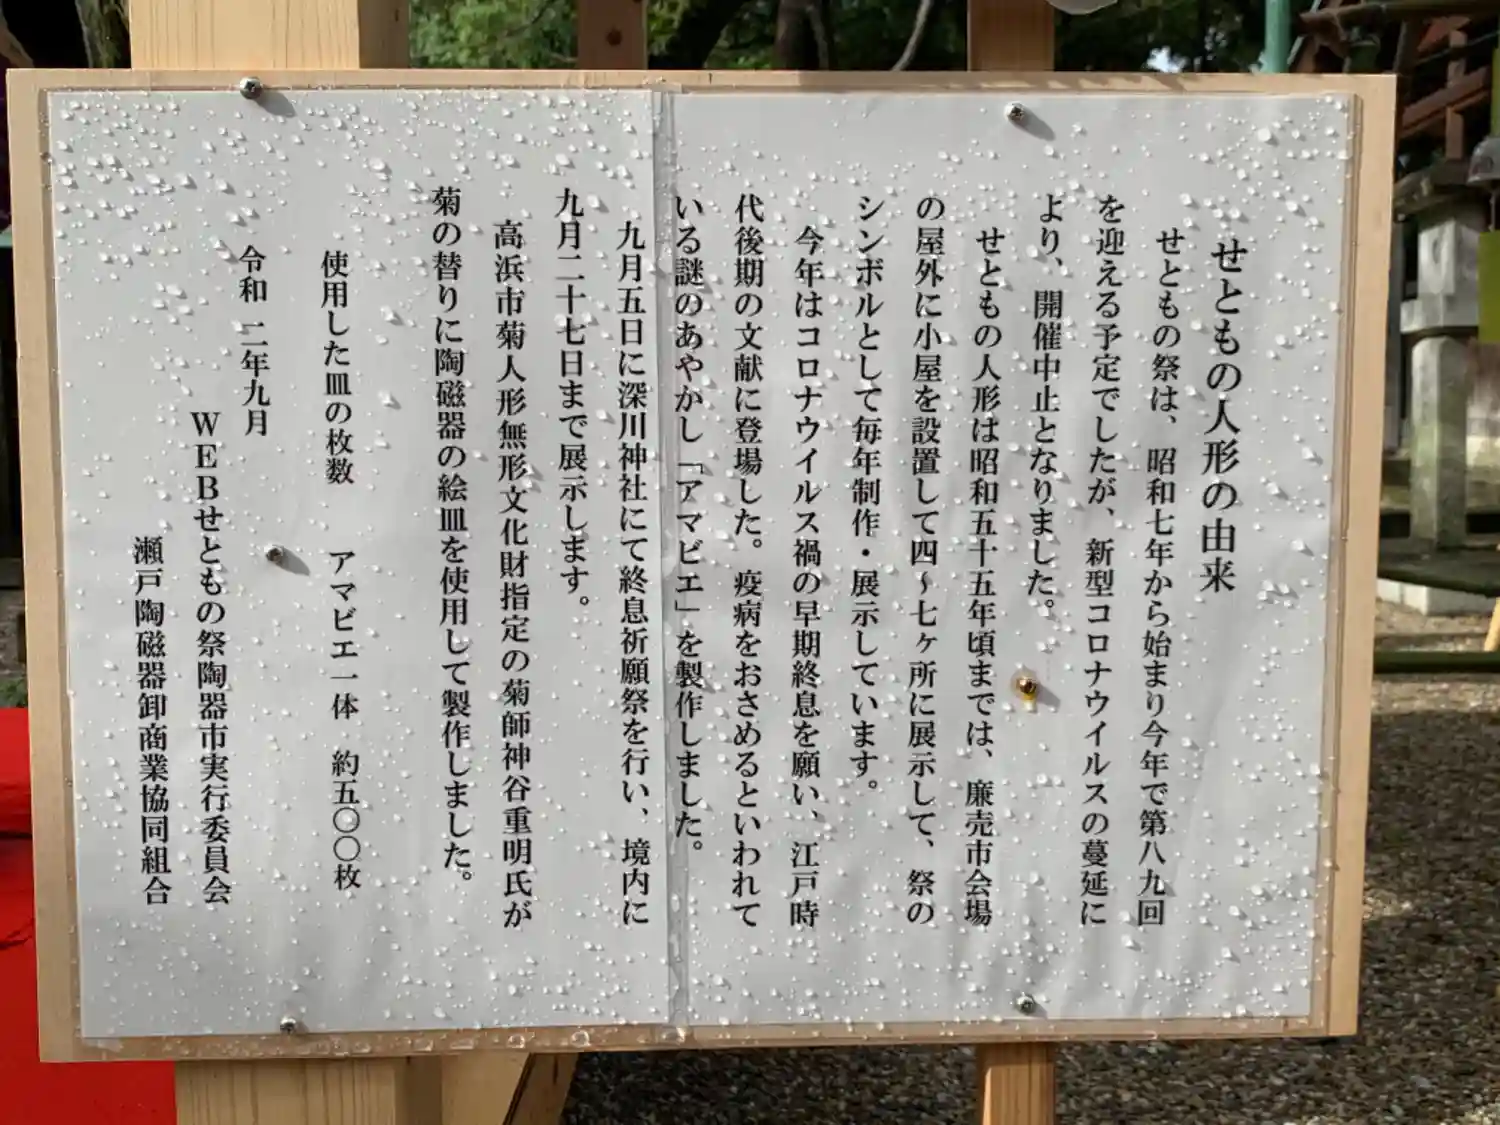 せともの人形の由来
せともの祭は、昭和七年から始まり今年で第八九回
を迎える予定でしたが、新型コロナウイルスの蔓延に
より、開催中止となりました。
せともの人形は昭和五十五年頃までは、廉売市会場
の屋外に小屋を設置して四～七ヶ所に展示して、祭の
シンボルとして毎年制作・展示しています。
今年はコロナウイルス禍の早期終息を願い、江戸時
代後期の文献に登場した。疫病をおさめるといわれて
いる謎のあやかし「アマビエ」を製作しました。
九月五日に深川神社にて終息祈願祭を行い、境内に
九月二十七日まで展示します。
高浜市菊人形無形文化財指定の菊師神谷重明氏が
菊の替りに陶磁器の絵皿を使用して製作しました。
使用した皿の枚数　アマビエ一体　約五〇〇枚
令和　二年九月
ＷＥＢせともの祭陶器市実行委員会
瀬戸陶磁器卸商業協同組合